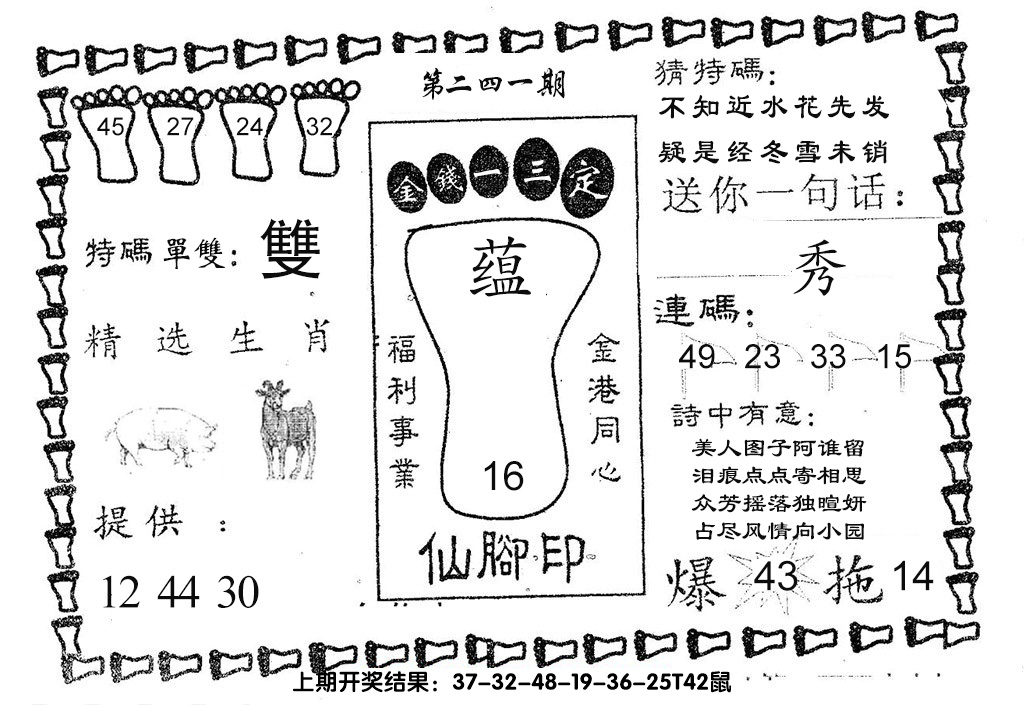 第二四一期
45 27 24 32
特碼單雙：雙
精选生肖
提供：
12 44 30
金錢一三定
蕴
福利事業
金港同心
16
仙腳印
猜特碼：
不知近水花先发
疑是经冬雪未销
送你一句话：
秀
連碼：
49 23 33 15
詩中有意：
美人图子阿谁留
泪痕点点寄相思
众芳摇落独暄妍
占尽风情向小园
爆 43 拖 14
上期开奖结果：37-32-48-19-36-25T42鼠